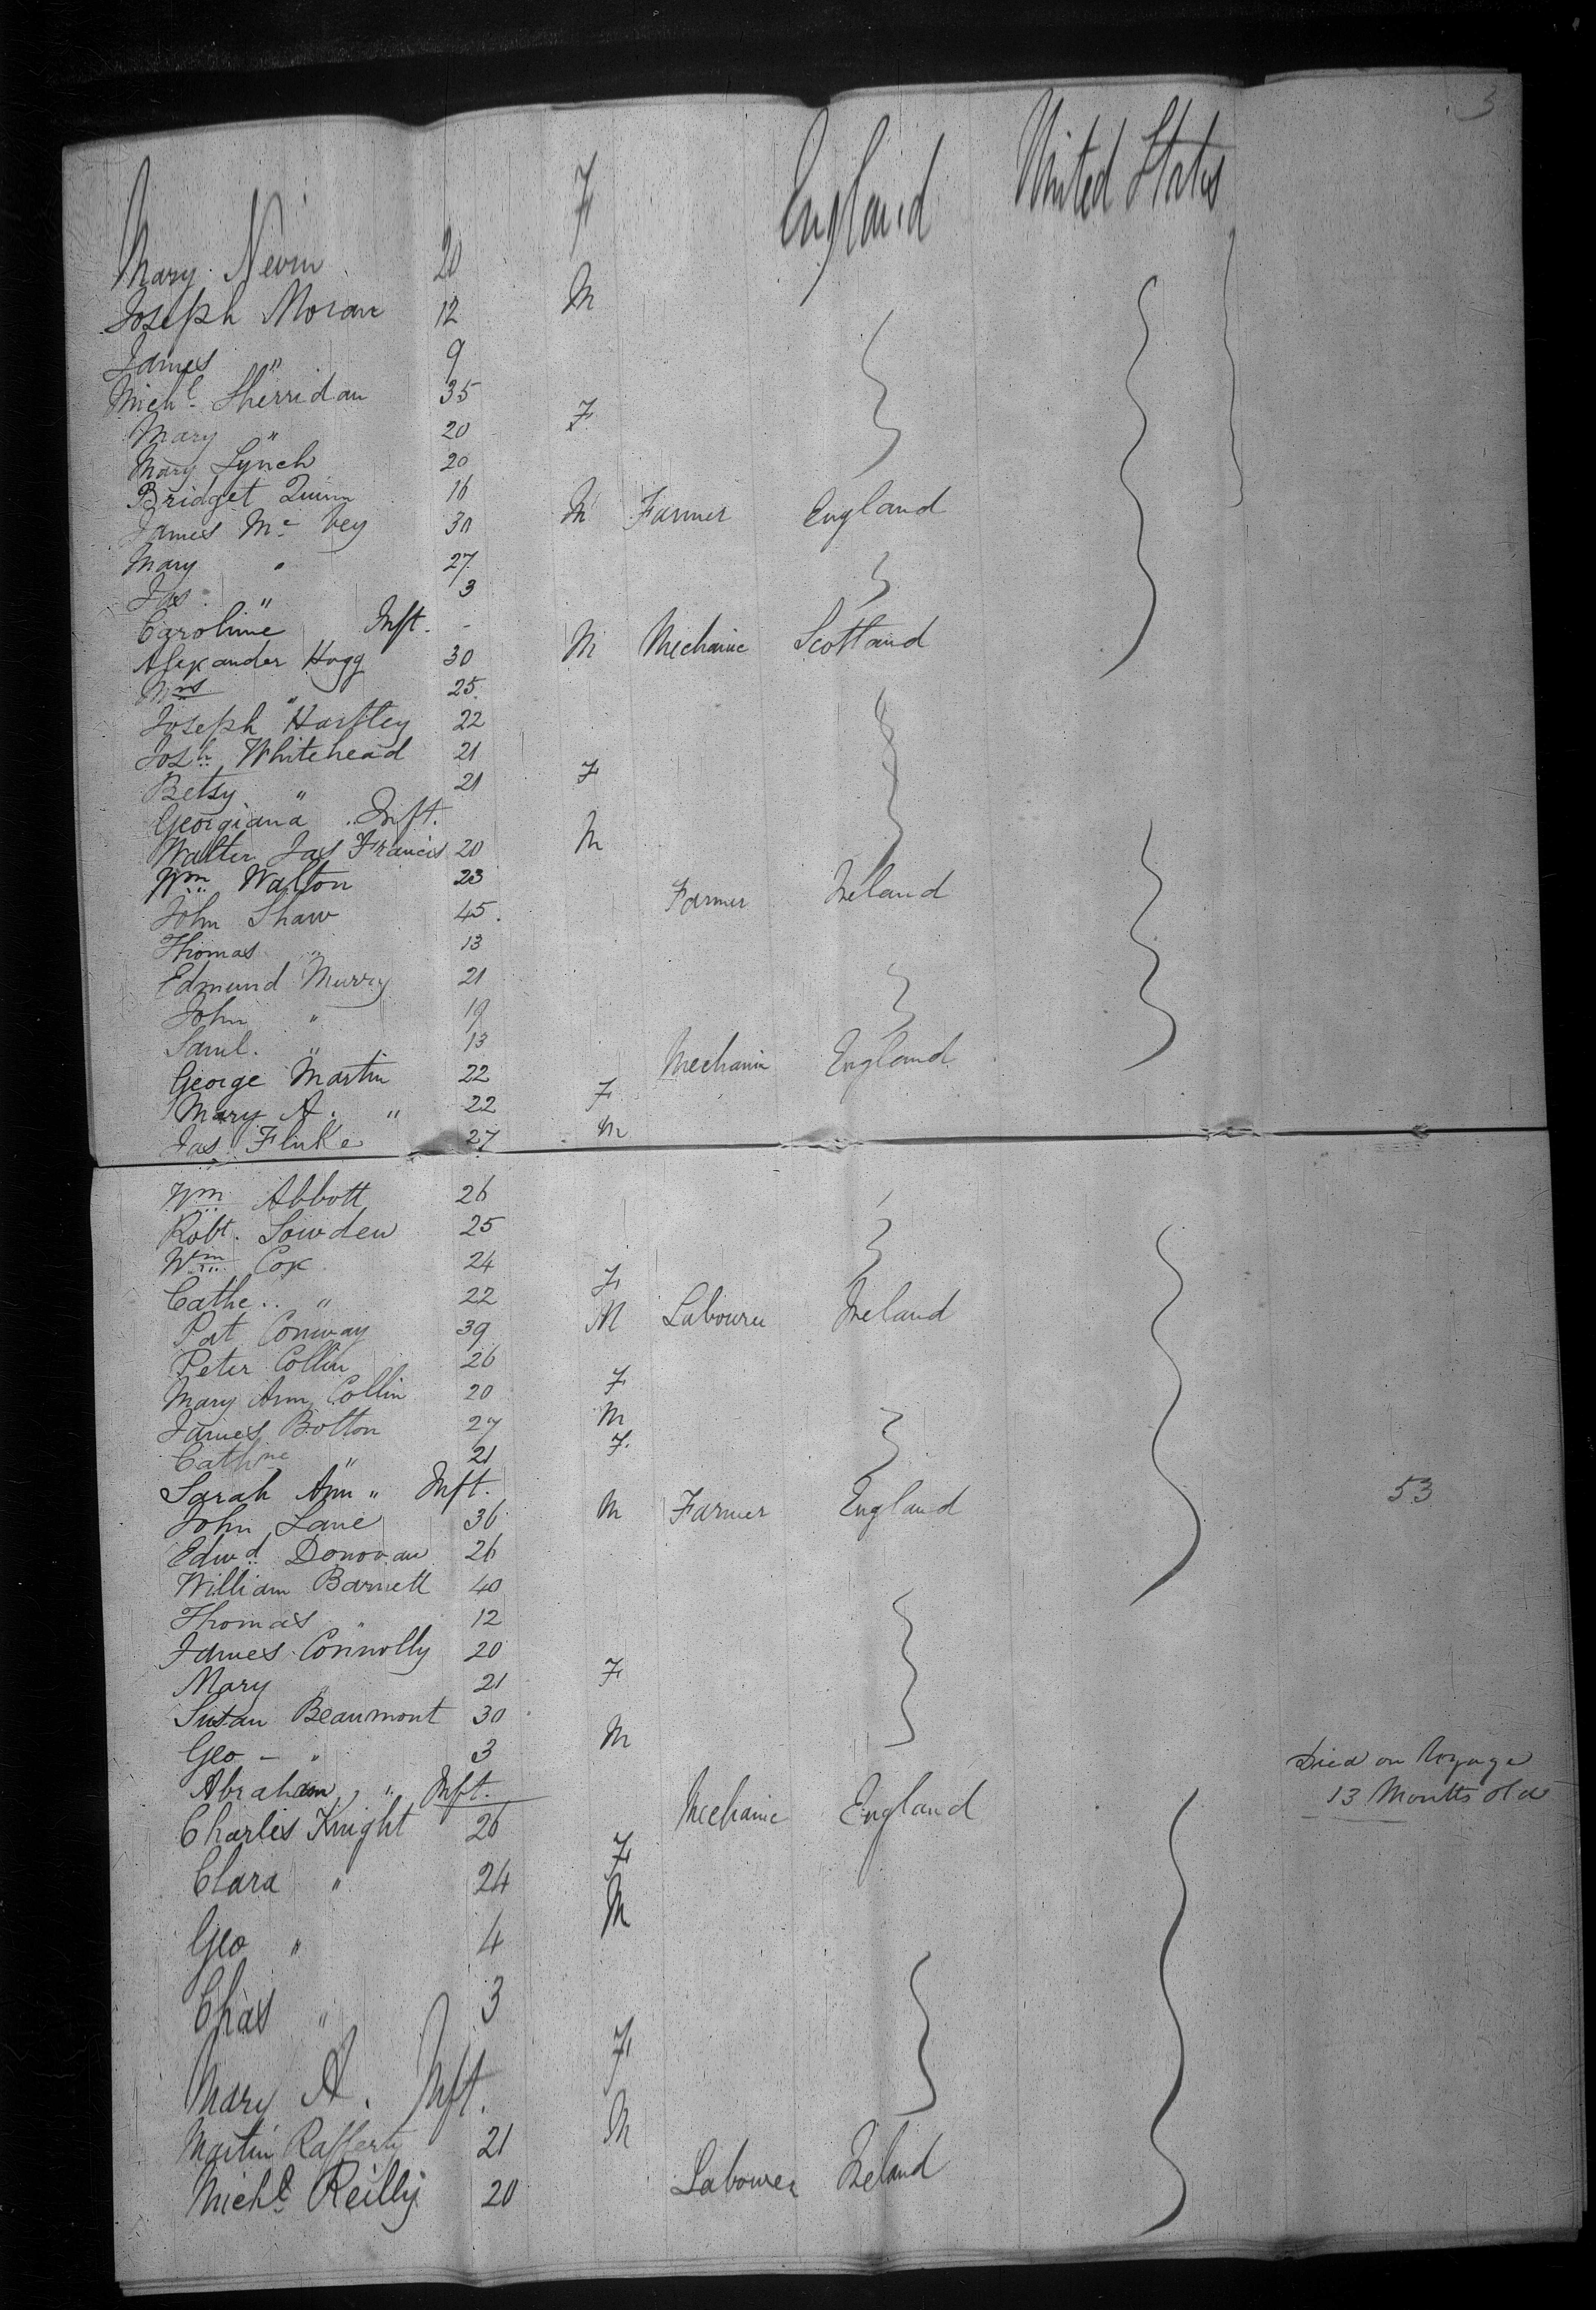 3
Mary Nevin 20 F England United States
Joseph Moran 12 M
James " 9
Michl. Sherridan 35
Mary " 20 F
Mary Lynch 20
Bridget Quinn 16
James Mc Vey 30 M Farmer England
Mary " 27
Jas. " 3
Caroline Inft. -
Alexander Hogg 30 M Mechanic Scotland
Mrs " 25
Joseph Hartley 22
Josh. Whitehead 21
Betsy " 21 F
Georgiana Inft.
Walter Jas Francis 20 M
Wm Walton 23
John Shaw 45 Farmer Ireland
Thomas " 13
Edmund Murry 21
John " 19
Saml. " 13
George Martin 22 Mechanic England
Mary A. " 22 F
Jas. Fluke 27 M
Wm Abbott 26
Robt. Sowden 25
Wm Cox 24
Cathe.. " 22 F
Pat Conway 39 M Labourer Ireland
Peter Collin 26
Mary Ann Collin 20 F
James Bolton 27 M
Cathne " 21 F.
Sarah Ann " Inft.
John Lane 36 M Farmer England 53
Edwd. Donovan 26
William Barnett 40
Thomas " 12
James Connolly 20
Mary " 21 F
Susan Beaumont 30
Geo - " 3 M
Abraham " Inft. Died on Voyage
13 Months old
Charles Knight 26 Mechanic England
Clara " 24 F
Geo " 4 M
Chas " 3
Mary A. Inft. F
Martin Rafferty 21 M
Michl. Reilly 20 Labourer Ireland